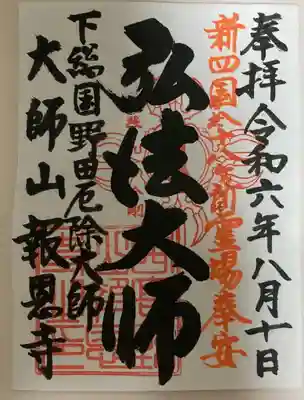 奉拝 令和六年八月十日
新四国八十八ヶ所霊場奉安
弘法大師
下総国野田厄除大師
大師山報恩寺